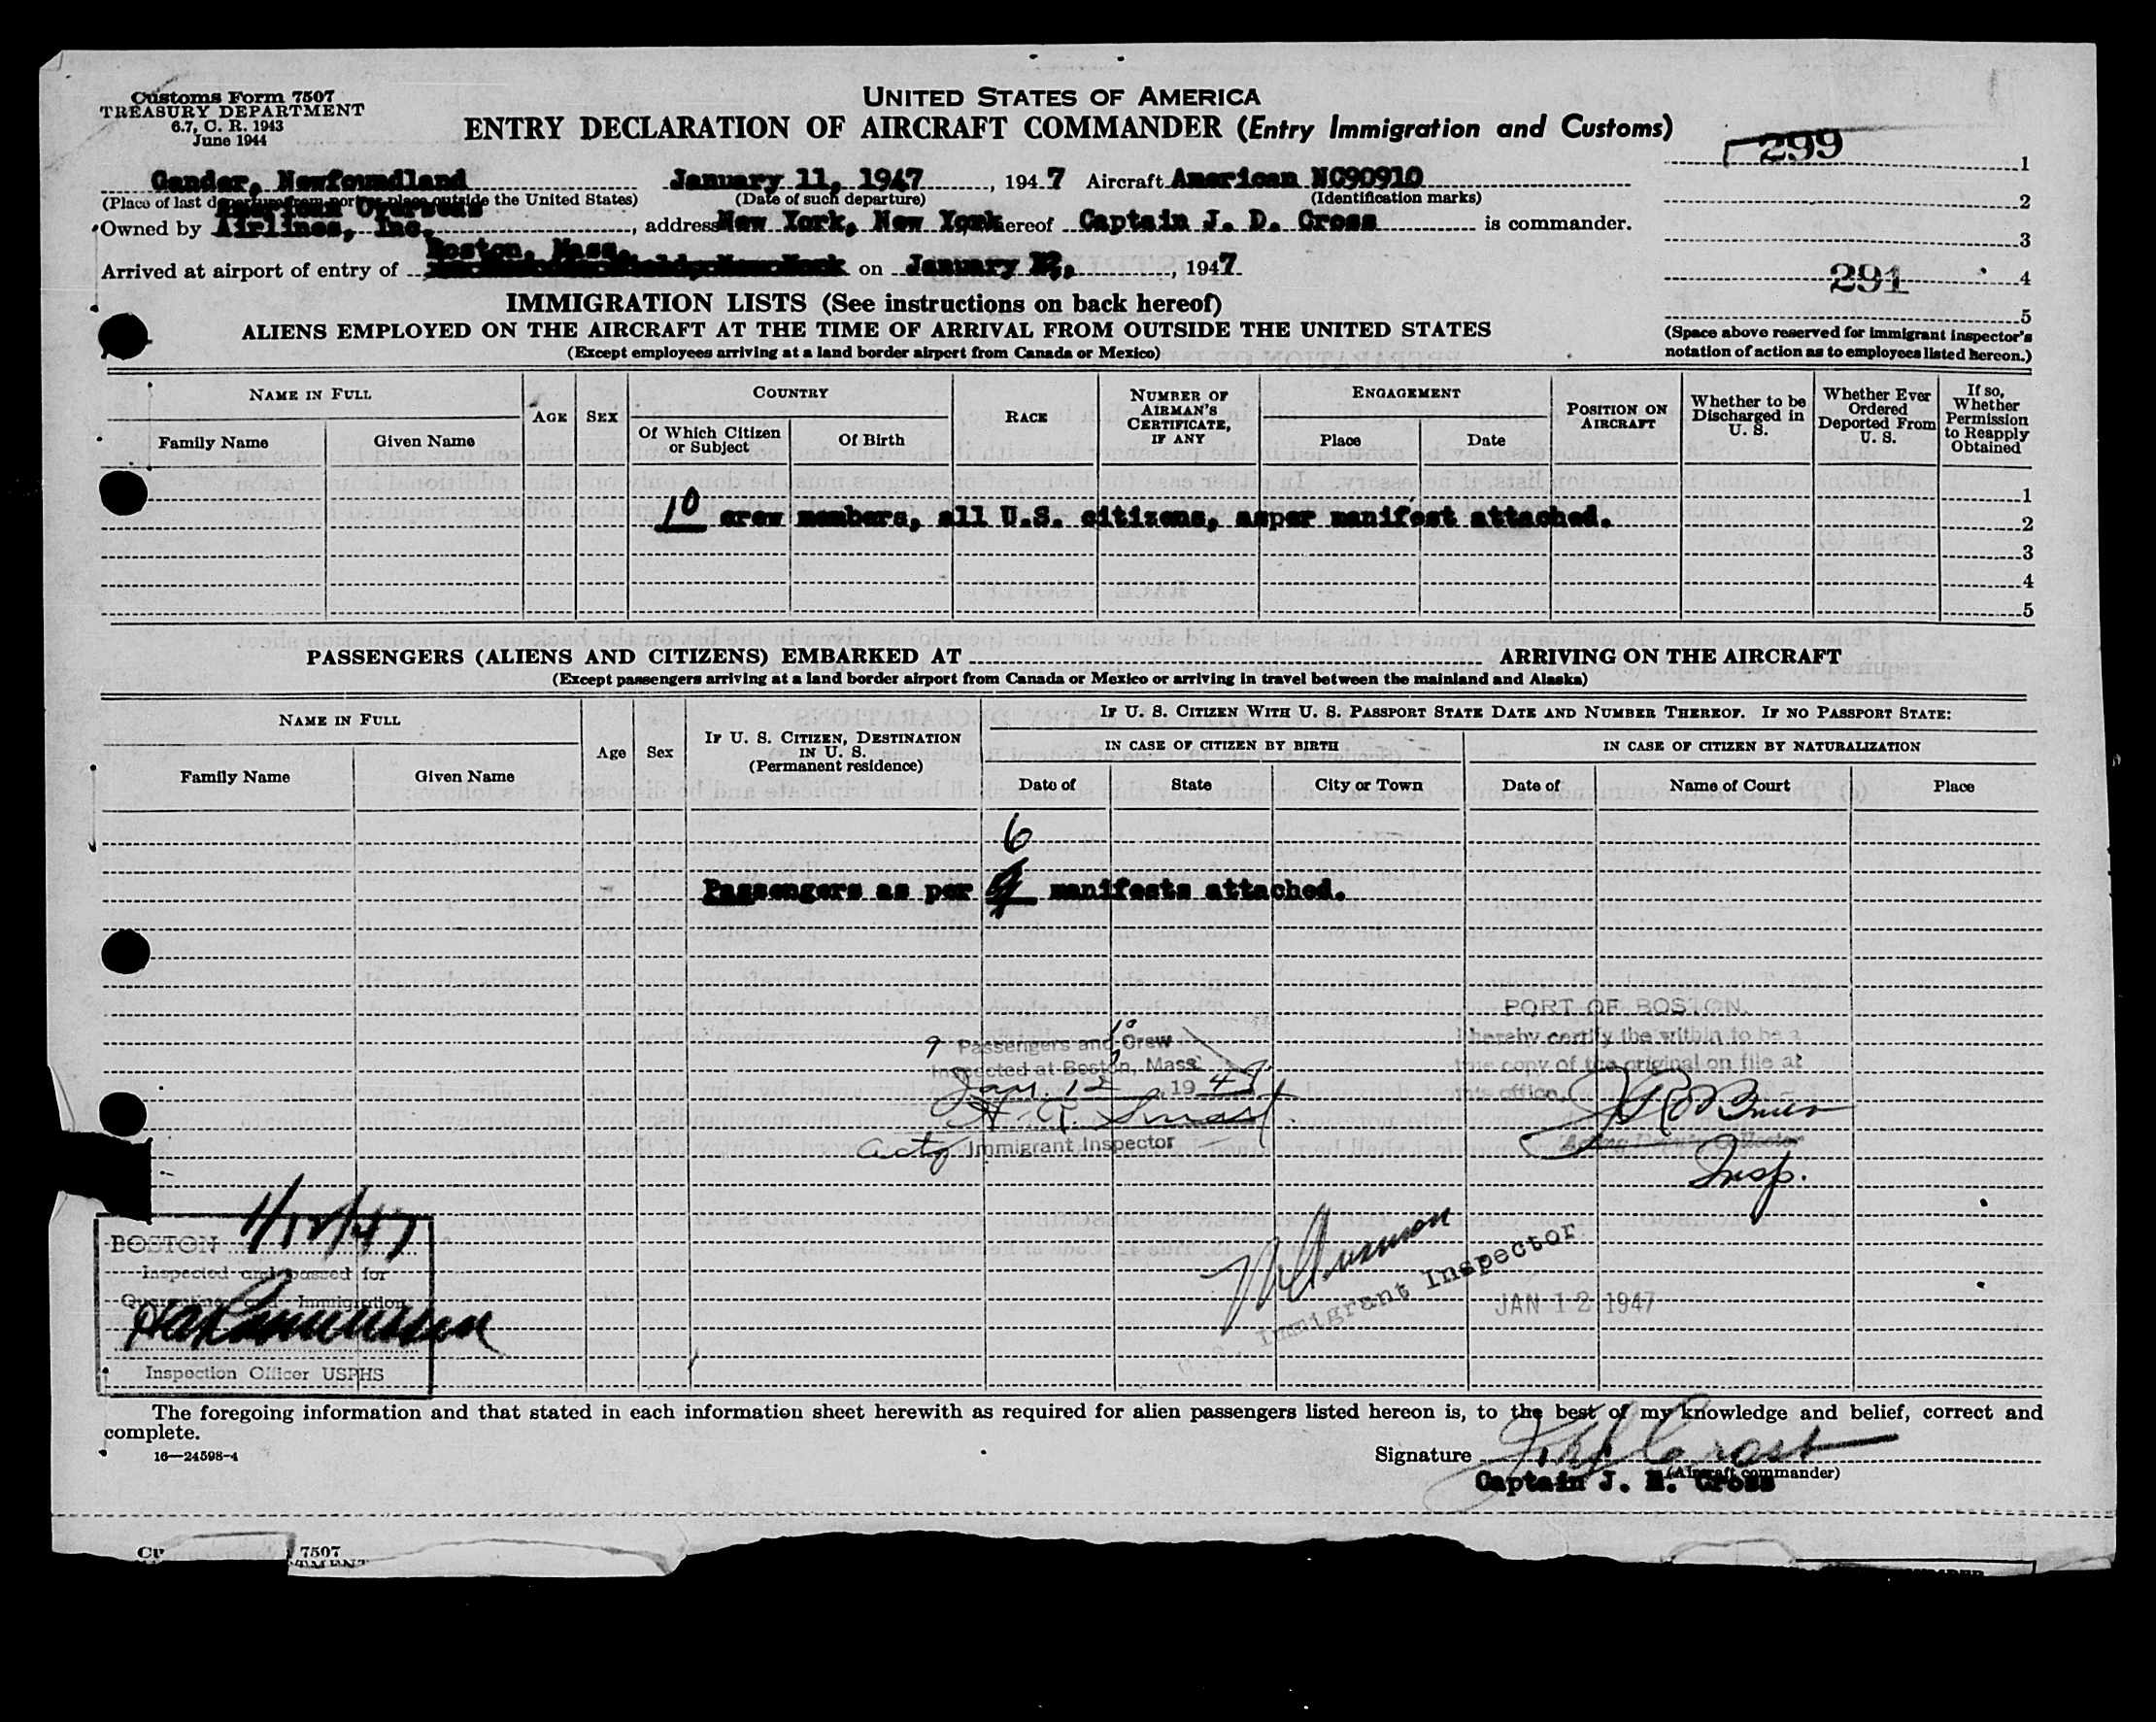 Customs Form 7507
TREASURY DEPARTMENT
6.7, C. R. 1943
June 1944
UNITED STATES OF AMERICA
ENTRY DECLARATION OF AIRCRAFT COMMANDER (Entry Immigration and Customs)
299 1
Gander, Newfoundland January 11, 1947, 1947 Aircraft American NC90910
(Place of last departure from port or place outside the United States) (Date of such departure) (Identification marks)
2
American Overseas
Owned by Airlines, Inc., address New York, New York hereof Captain J. D. Cross is commander.
3
Boston, Mass.
Arrived at airport of entry of on January 12, 1947
291 4
5
IMMIGRATION LISTS (See instructions on back hereof)
ALIENS EMPLOYED ON THE AIRCRAFT AT THE TIME OF ARRIVAL FROM OUTSIDE THE UNITED STATES
(Except employees arriving at a land border airport from Canada or Mexico)
(Space above reserved for immigrant inspector's
notation of action as to employees listed hereon.)
NAME IN FULL AGE SEX COUNTRY RACE NUMBER OF AIRMAN'S CERTIFICATE, IF ANY ENGAGEMENT POSITION ON AIRCRAFT Whether to be Discharged in U. S. Whether Ever Ordered Deported From U. S. If so, Whether Permission to Reapply Obtained
Family Name Given Name Of Which Citizen or Subject Of Birth Place Date
1
10 crew members, all U.S. citizens, asper manifest attached. 2
3
4
5
PASSENGERS (ALIENS AND CITIZENS) EMBARKED AT ARRIVING ON THE AIRCRAFT
(Except passengers arriving at a land border airport from Canada or Mexico or arriving in travel between the mainland and Alaska)
NAME IN FULL Age Sex IF U. S. CITIZEN, DESTINATION IN U. S. (Permanent residence) IF U. S. CITIZEN WITH U. S. PASSPORT STATE DATE AND NUMBER THEREOF. IF NO PASSPORT STATE:
IN CASE OF CITIZEN BY BIRTH IN CASE OF CITIZEN BY NATURALIZATION
Family Name Given Name Date of State City or Town Date of Name of Court Place
6
Passengers as per manifests attached.
PORT OF BOSTON.
I hereby certify the within to be a
true copy of the original on file at
this office.
Insp.
9 Passengers and 10 Crew
Inspected at Boston, Mass.
Jan. 12 1947
H. R. Smart
actg Immigrant Inspector
BOSTON 1/12/47
Inspected and passed for
Quarantine and Immigration
Inspection Officer USPHS
U.S. Immigrant Inspector
JAN 12 1947
The foregoing information and that stated in each information sheet herewith as required for alien passengers listed hereon is, to the best of my knowledge and belief, correct and
complete.
16—24598-4
Signature
(Aircraft commander)
Captain J. D. Cross
7507